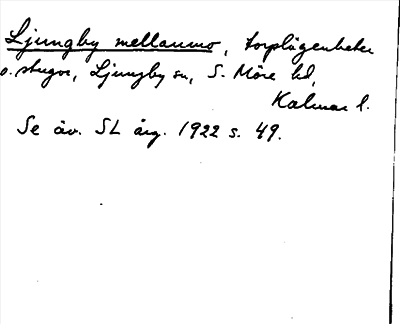 Ljungby mellanmo, torplägenheter
o. stugor, Ljungby sn, S. Möre hd,
Kalmar l.
Se äv. SL årg. 1922 s. 49.